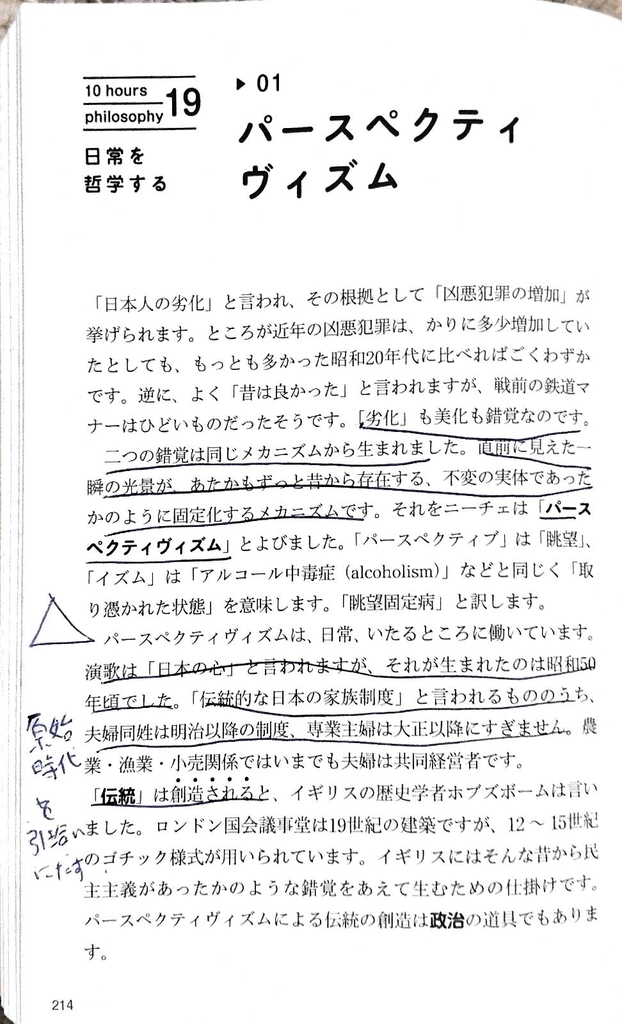 10 hours
philosophy
19
日常を
哲学する
▶ 01
パースペクティ
ヴィズム
「日本人の劣化」と言われ、その根拠として「凶悪犯罪の増加」が
挙げられます。ところが近年の凶悪犯罪は、かりに多少増加してい
たとしても、もっとも多かった昭和20年代に比べればごくわずか
です。逆に、よく「昔は良かった」と言われますが、戦前の鉄道マ
ナーはひどいものだったそうです。「劣化」も美化も錯覚なのです。
二つの錯覚は同じメカニズムから生まれました。直前に見えた一
瞬の光景が、あたかもずっと昔から存在する、不変の実体であった
かのように固定化するメカニズムです。それをニーチェは「パース
ペクティヴィズム」とよびました。「パースペクティブ」は「眺望」、
「イズム」は「アルコール中毒症（alcoholism）」などと同じく「取
り憑かれた状態」を意味します。「眺望固定病」と訳します。
パースペクティヴィズムは、日常、いたるところに働いています。
演歌は「日本の心」と言われますが、それが生まれたのは昭和50
年頃でした。「伝統的な日本の家族制度」と言われるもののうち、
夫婦同姓は明治以降の制度、専業主婦は大正以降にすぎません。農
業・漁業・小売関係ではいまでも夫婦は共同経営者です。
「伝統」は創造されると、イギリスの歴史学者ホブズボームは言い
ました。ロンドン国会議事堂は19世紀の建築ですが、12〜15世紀
のゴチック様式が用いられています。イギリスにはそんな昔から民
主主義があったかのような錯覚をあえて生むための仕掛けです。
パースペクティヴィズムによる伝統の創造は政治の道具でもありま
す。
原始
時代
を
引き合い
にだす
214